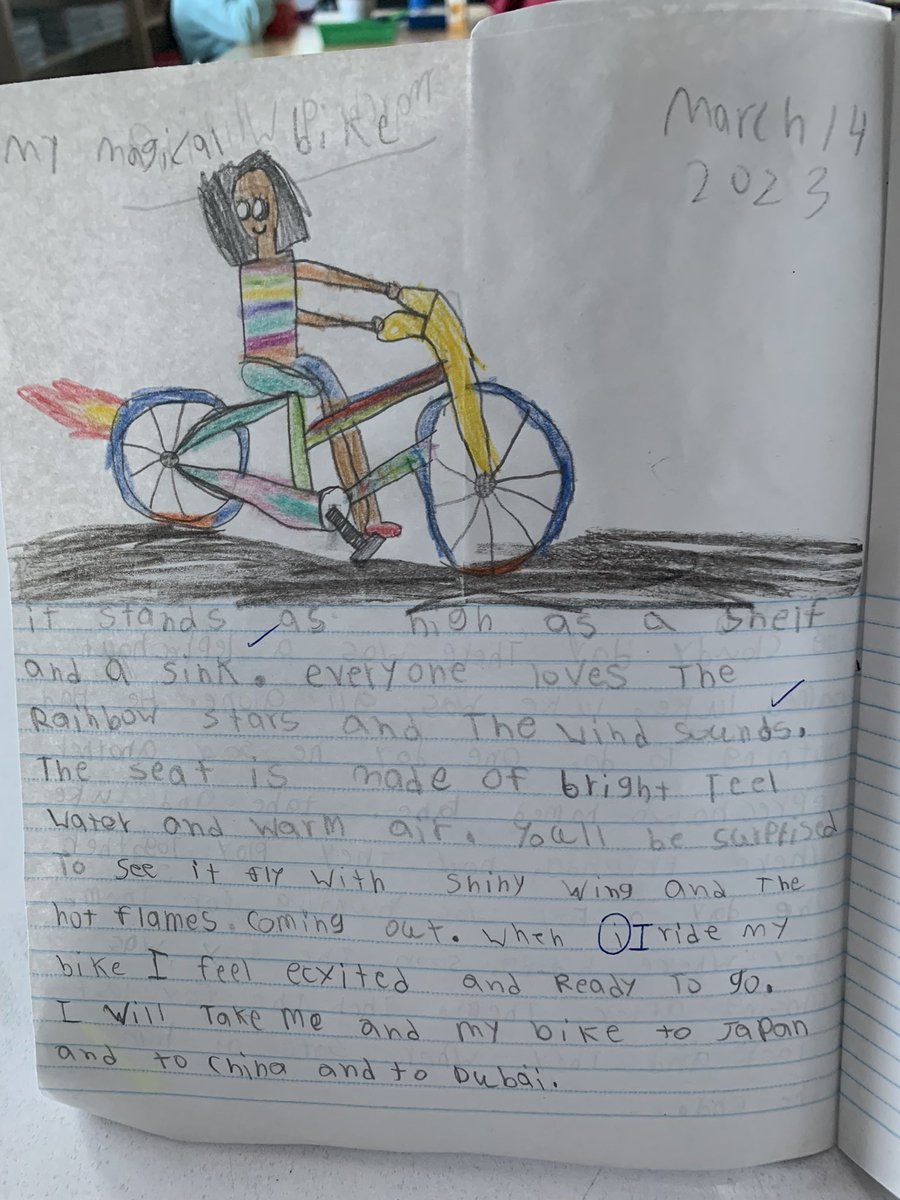 My magical bike
March 14
2023
it stands as high as a shelf
and a sink. everyone loves The
Rainbow stars and The wind sounds.
The seat is made of bright Teel
Water and warm air. Youll be surprised
To see it fly with shiny wing and The
hot flames. coming out. when i I ride my
bike I feel ecxited and Ready To go.
I will Take me and my bike to Japan
and to china and to Dubai.